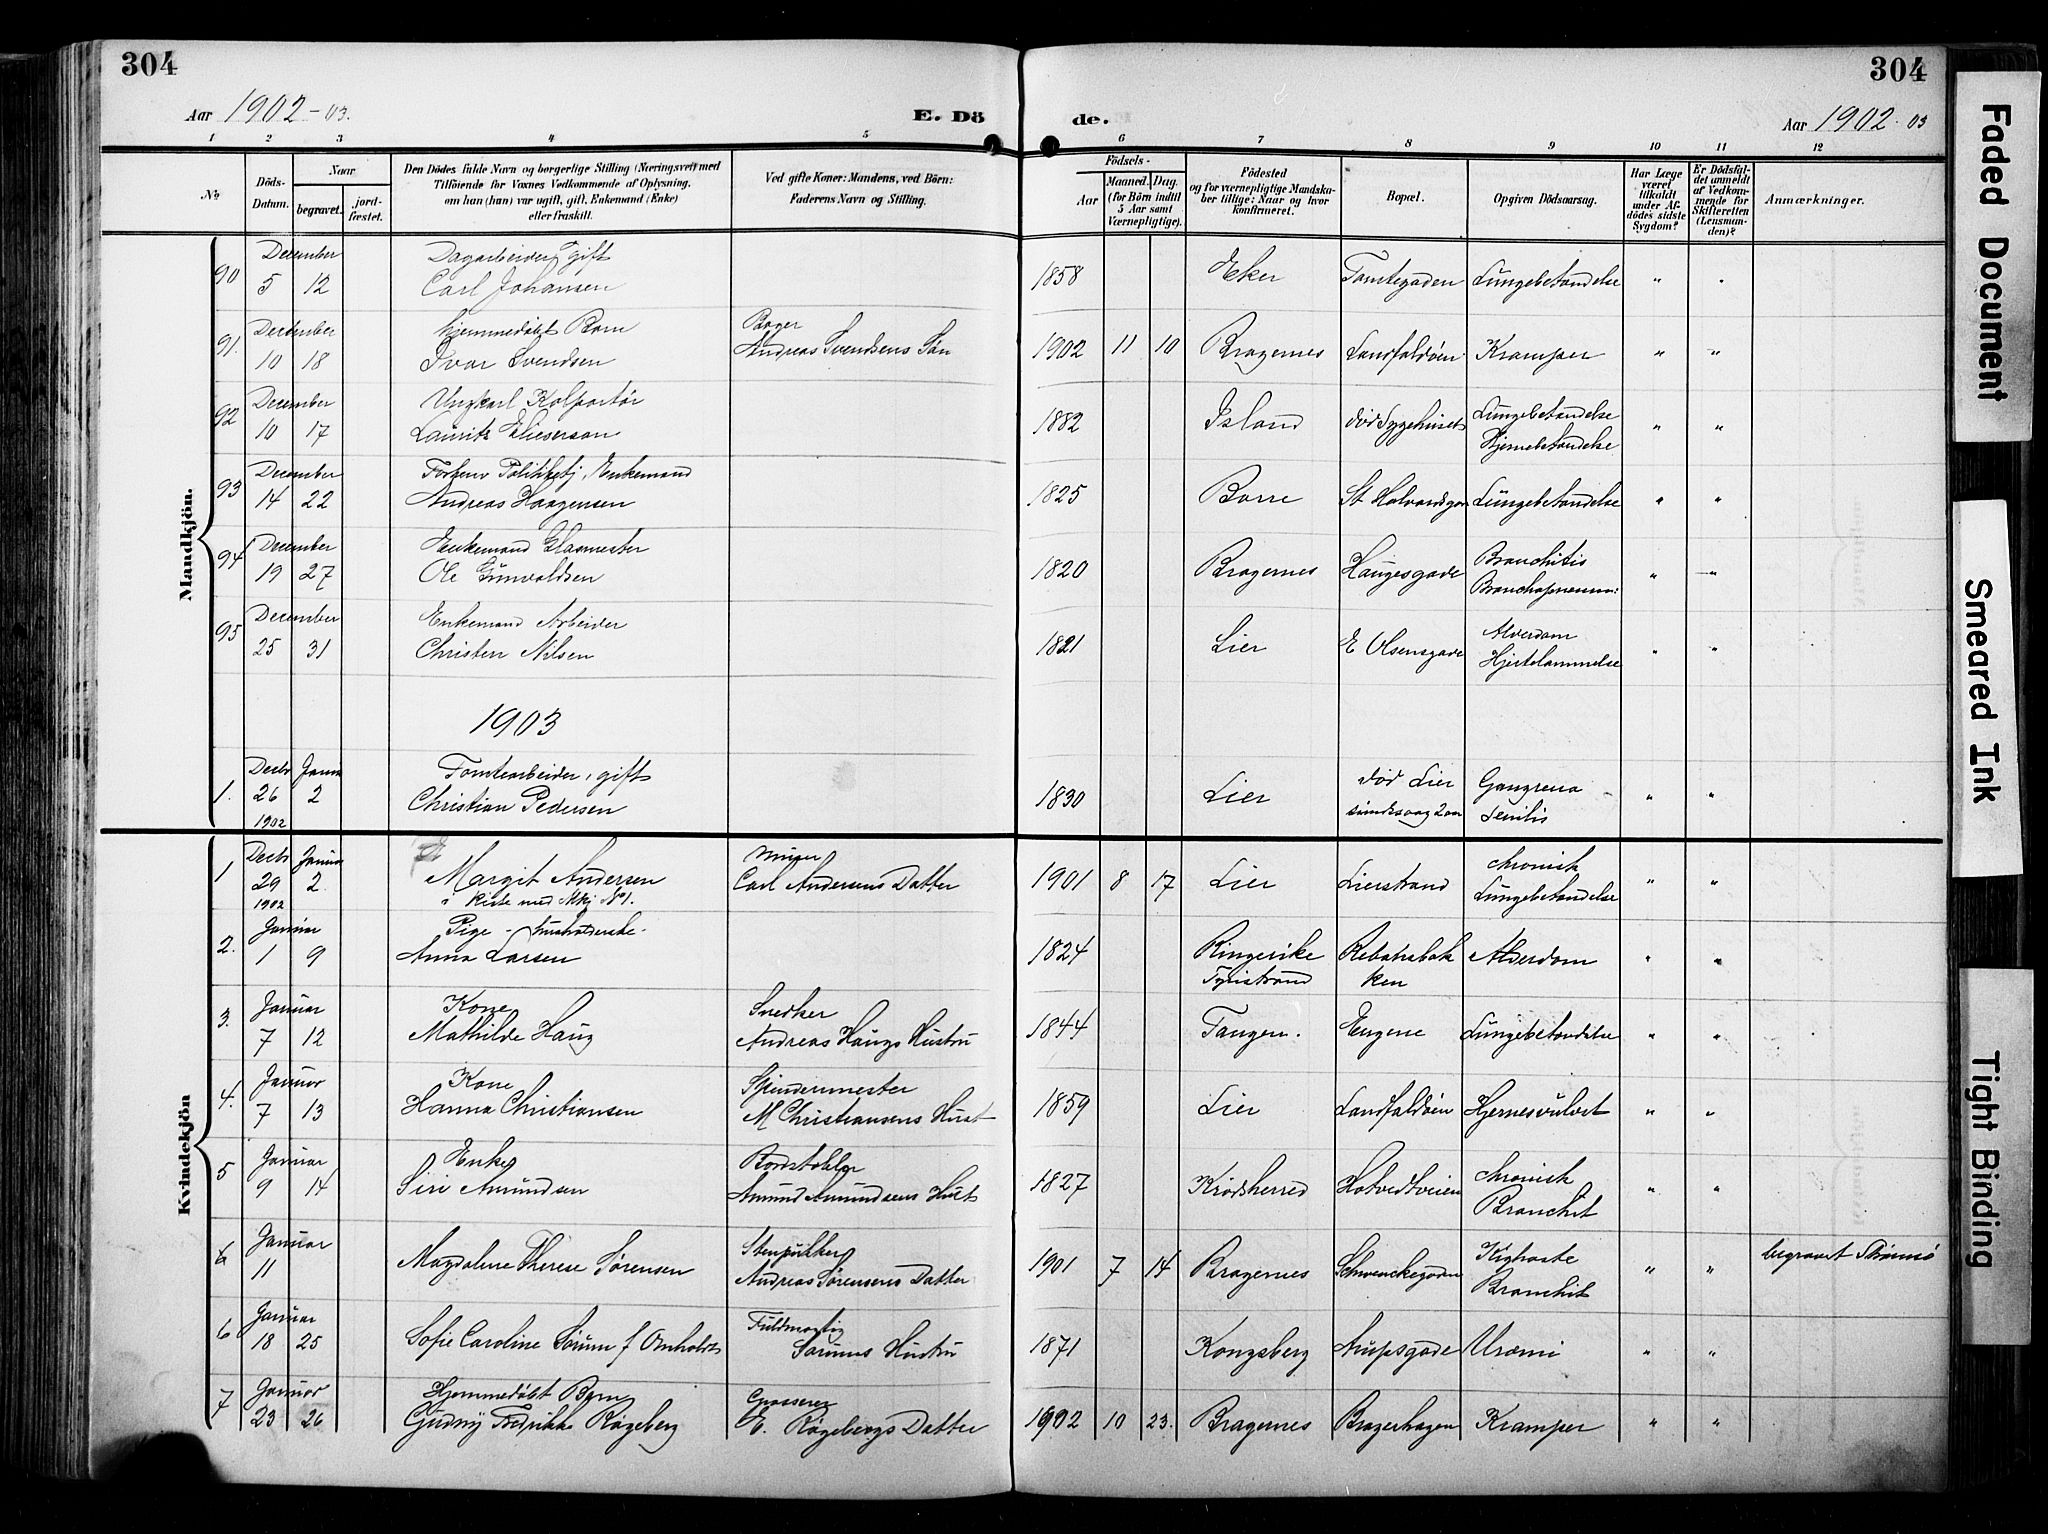 304
304
Aar 1902-03.
E. Dö
de.
Aar 1902-03
1 2 3 4 5 6 7 8 9 10 11 12
No
Döds-Datum.
Naar
begravet.
jordfæstet.
Den Dödes fulde Navn og borgerlige Stilling (Næringsvei) med
Tilföiende for Voxnes Vedkommende af Oplysning,
om han (hun) var ugift, gift, Enkemand (Enke)
eller fraskilt.
Ved gifte Koner: Mandens, ved Börn:
Faderens Navn og Stilling.
Födsels-
Aar
Maaned. Dag.
(for Börn indtil
5 Aar samt
Værnepligtige).
Födested
og for værnepligtige Mandskaber tillige: Naar og hvor
konfirmeret.
Bopæl.
Opgiven Dödsaarsag.
Har Læge
været
tilkaldt
under Afdödes sidste
Sygdom?
Er Dödsfaldet anmeldt
af Vedkommende for
Skifteretten
(Lensmanden)?
Anmærkninger.
Mandkjön.
December Dagarbeider, gift
90 5 12 Carl Johansen 1858 Eker Tomtegaden Lungebetændelse " "
December hjemmedøbt Barn Bager
91. 10 18 Ivar Svendsen Andreas Svendsens Søn 1902 11 10 Bragernes Landfaldøen Kramper " "
December Ungkarl Kolportør Lungebetændelse
92 10 17 Lauritz Elieserson 1882 Island død Sygehuset Hjernebetændelse " "
December Forhenv Politibetj, Enkemand
93 14 22 Andreas Haagensen 1825 Borre St Halvardsgan Lungebetændelse " "
December Enkemand Glasmester Bronchitis
94 19 27 Ole Gunvaldsen 1820 Bragernes Haugesgade Bronchopneumo: " "
December Enkemand Arbeider Alderdom
95 25 31 Christen Nilsen 1821 Lier E Olsensgade Hjertelammelse " "
1903
Decbr Janu Tomtearbeider, gift død Lier Gangrena
1. 26 2 Christian Pedersen 1830 Lier Senilis " "
1902
Kvindekjön
Decbr Januar chronisk
1 29 2. Margit Andersen Carl Andersens Datter 1901 8 17 Lier Lierstrand Lungebetændelse " "
1902 i Kiste med Mkj No 1.
Januar Pige - husholderske -
2. 1 9 Anna Larsen 1824 Ringerike Alderdom " "
Tyristrand
Januar Kone Snedker
3. 7 12 Mathilde Haug Andreas Haugs Hustru 1844 Tangen. Engene Lungebetændelse " "
Januar Kone Spindermester
4. 7 13 Hanna Christiansen M Christiansens Hust 1859 Lier Landfaldøen Hjernesvulst " "
Januar Enke chronisk
5 9 14 Siri Amundsen Amund Amundsens Hust 1827 Krødsherred Hotvedtveien Bronchit " "
Januar Stenpukker Kighoste begravet Strømsø
6 11 Magdalene Therese Sørensen Andreas Sørensens Datter 1901 7 14 Bragernes Schwenckegaden Bronchit " "
Januar Fuldmægtig
6 18 25 Sofie Caroline Sørum f Omholdt Sørums Hustru 1871 Kongsberg Urami " "
Januar Hjemmedøbt Barn Grosserer
7 23 26 Gudny Fredrikke Røgeberg E. Røgebergs Datter 1902 10 23. Bragernes Bragerhagen Kramper " "
Faded Document
Smeared Ink
Tight Binding